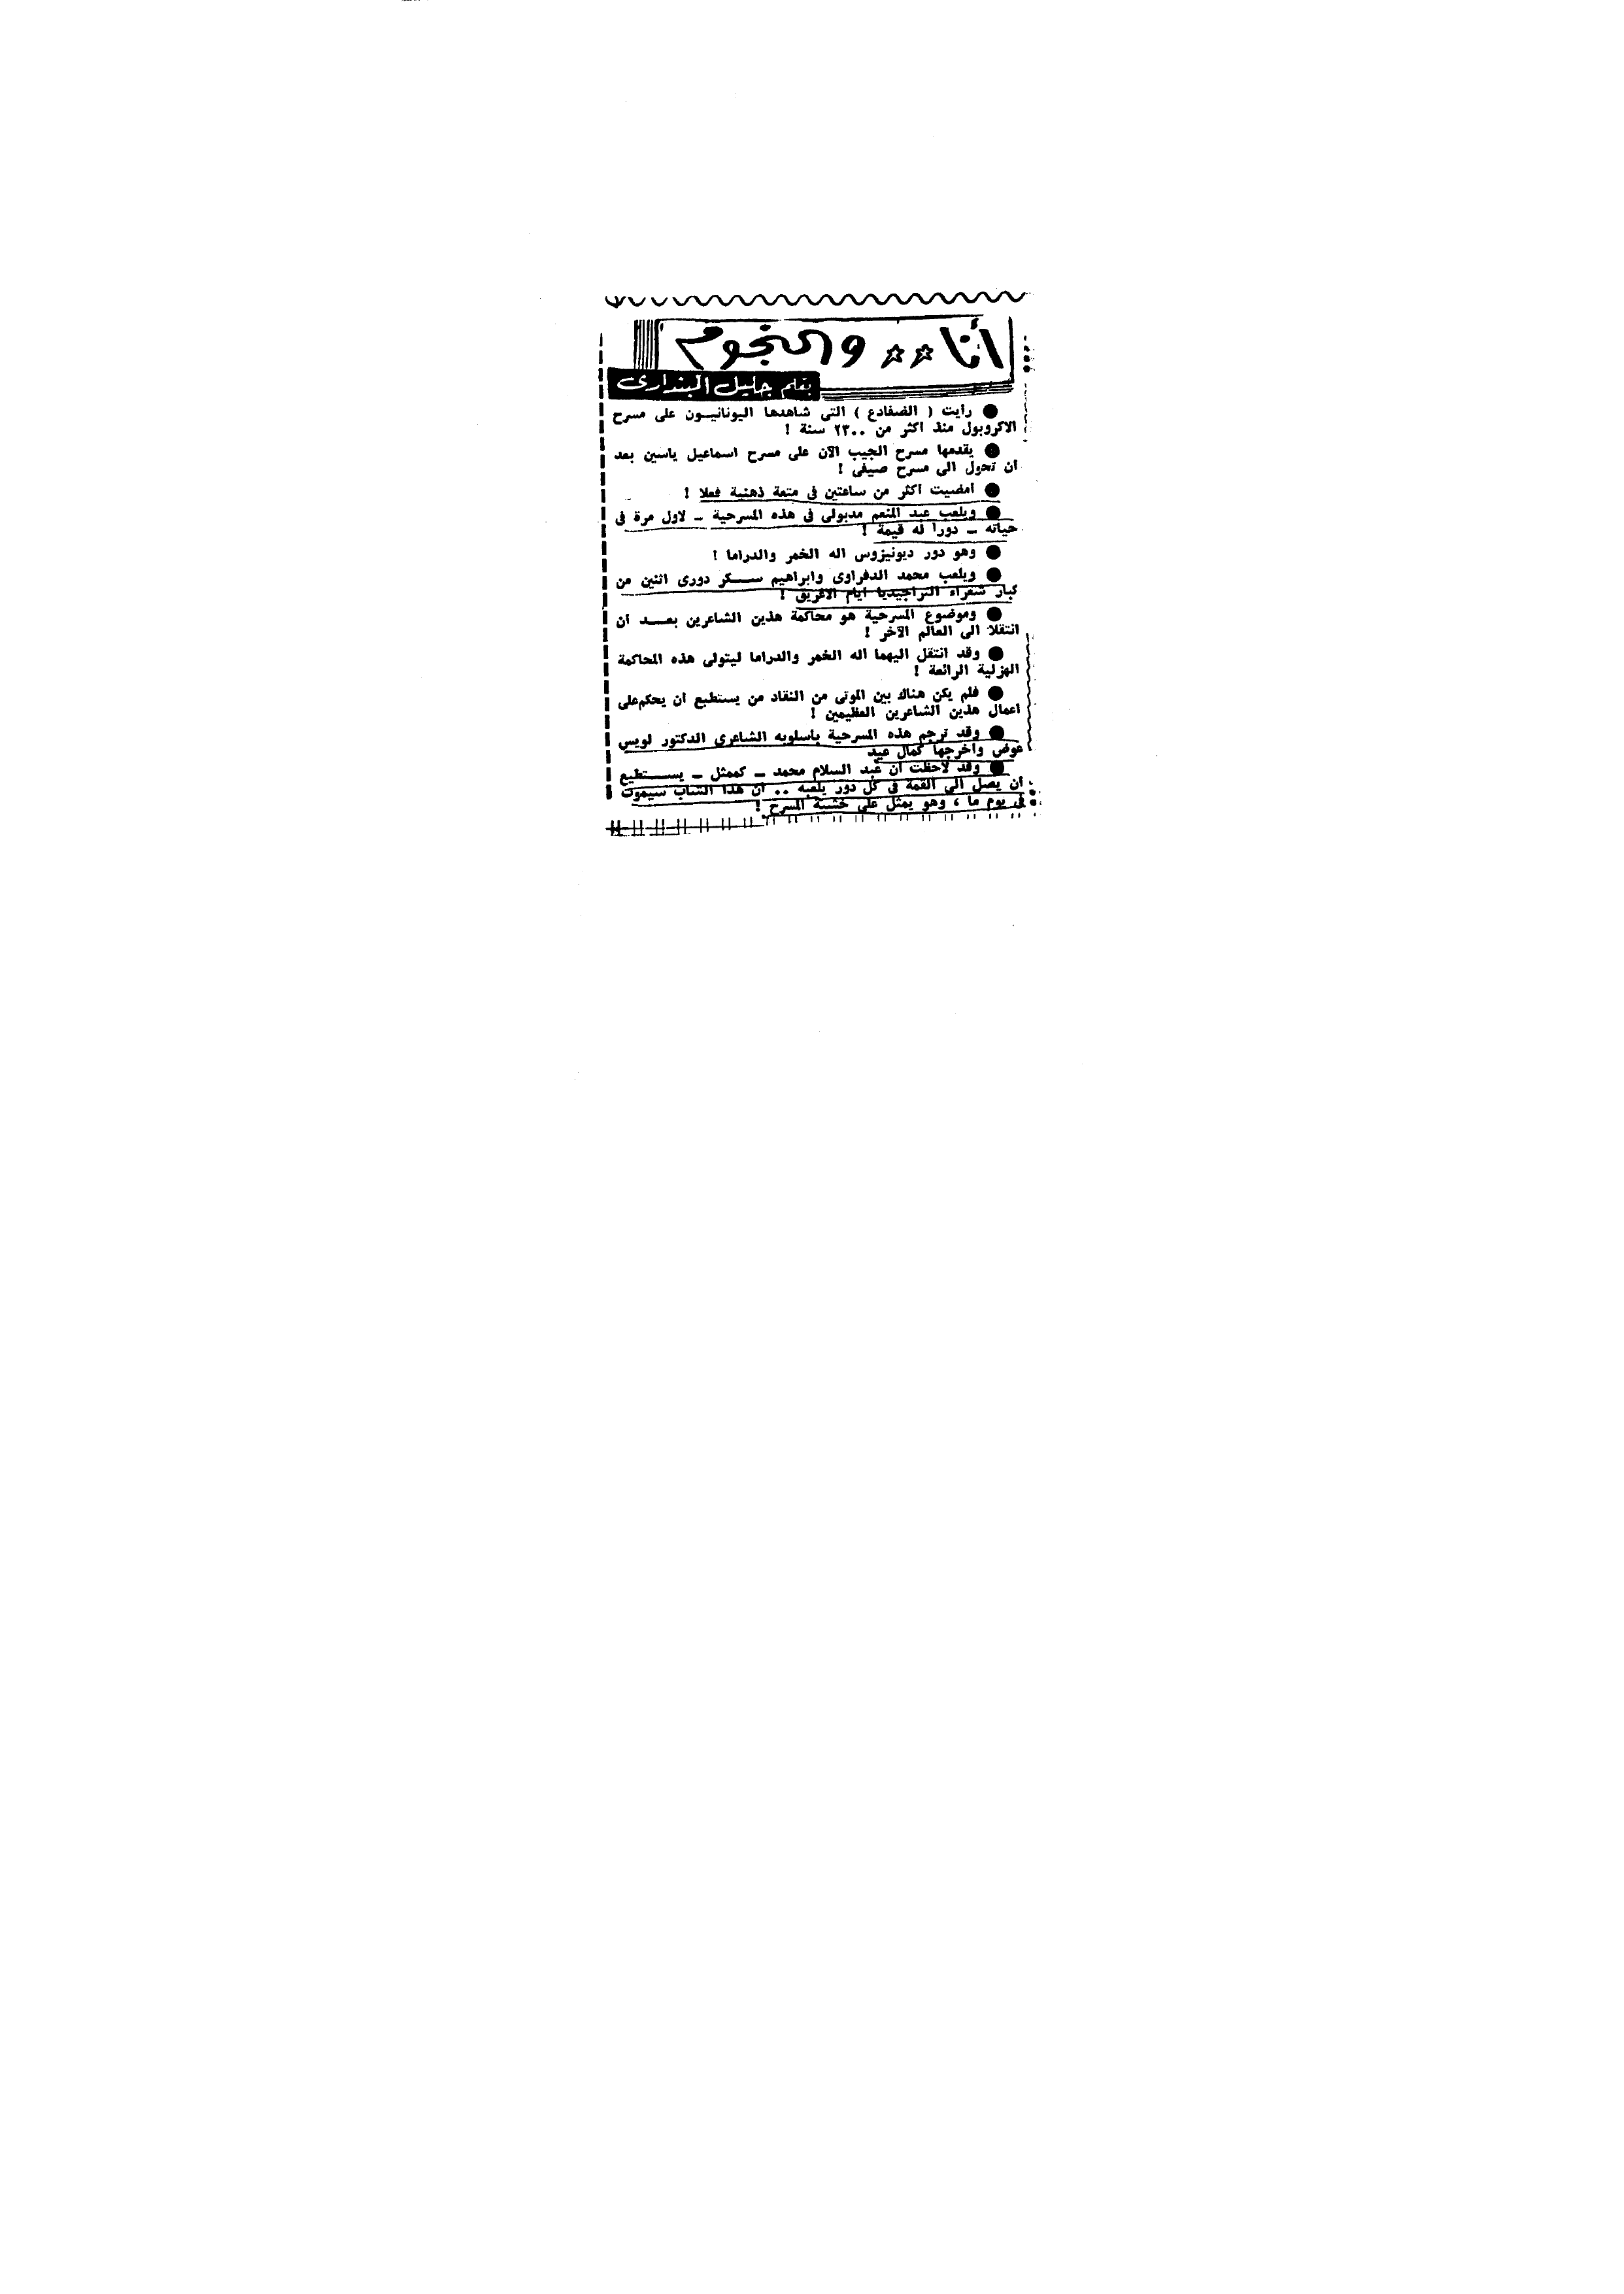 أنا ☆☆ والنجوم
بقلم جليل البندارى
● رأيت ( الضفادع ) التى شاهدها اليونانيون على مسرح
الاكروبول منذ اكثر من ٢٣٠٠ سنة !
● يقدمها مسرح الجيب الآن على مسرح اسماعيل ياسين بعد
ان تحول الى مسرح صيفى !
● امضيت اكثر من ساعتين فى متعة ذهنية فعلا !
● ويلعب عبد المنعم مدبولى فى هذه المسرحية - لاول مرة فى
حياته - دورا له قيمة !
● وهو دور ديونيزوس اله الخمر والدراما !
● ويلعب محمد الدفراوى وابراهيم سكر دورى اثنين من
كبار شعراء التراجيديا ايام الاغريق !
● وموضوع المسرحية هو محاكمة هذين الشاعرين بعد ان
انتقلا الى العالم الآخر !
● وقد انتقل اليهما اله الخمر والدراما ليتولى هذه المحاكمة
الهزلية الرائعة !
● فلم يكن هناك بين الموتى من النقاد من يستطيع ان يحكم على
اعمال هذين الشاعرين العظيمين !
● وقد ترجم هذه المسرحية باسلوبه الشاعرى الدكتور لويس
عوض واخرجها كمال عيد
● وقد لاحظت ان عبد السلام محمد - كممثل - يستطيع
ان يصل الى القمة فى كل دور يلعبه .. ان هذا الشاب سيموت
فى يوم ما ، وهو يمثل على خشبة المسرح !